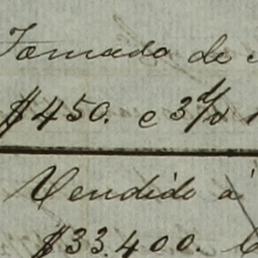 Tomado de
$450. e 3 d/d
Vendido á
$33.400.